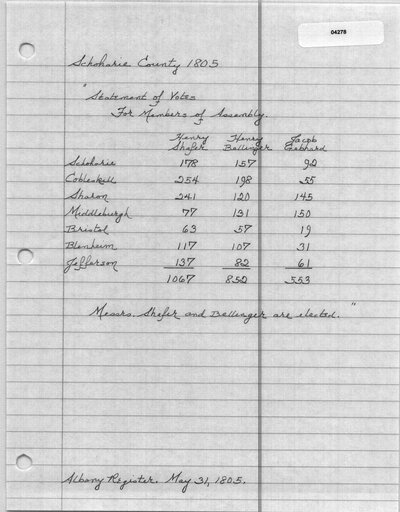 04278
Schoharie County 1805
"Statement of Votes
For Members of Assembly.
Henry Henry Jacob
Shafer Bellinger Gebhard
Schoharie 178 157 92
Cobleskill 254 198 55
Sharon 241 120 145
Middleburgh 77 131 150
Bristol 63 57 19
Blenheim 117 107 31
Jefferson 137 82 61
1067 852 553
Messrs. Shafer and Bellinger are elected."
Albany Register. May 31, 1805.